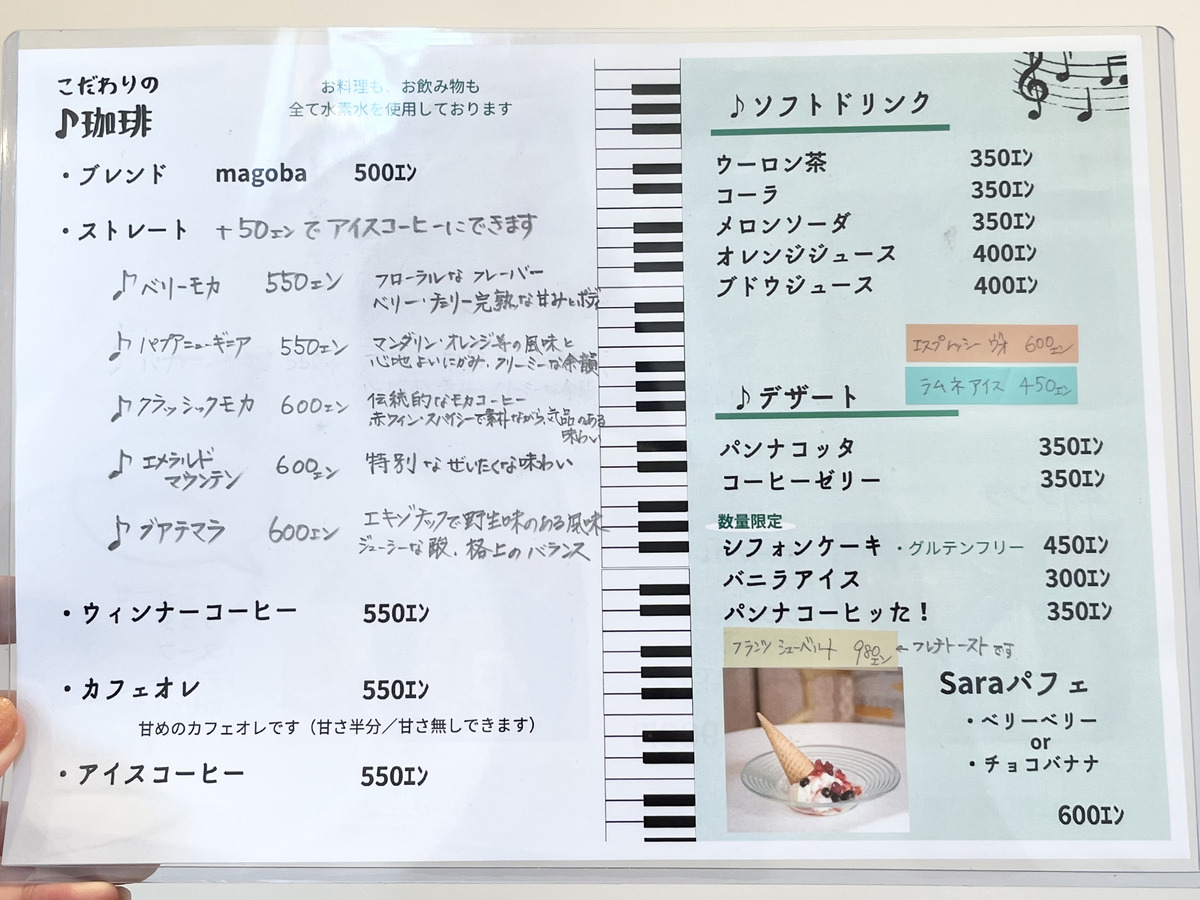 こだわりの
♪珈琲
お料理も、お飲み物も
全て水素水を使用しております
・ブレンド magoba 500エン
・ストレート +50エンでアイスコーヒーにできます
♪ベリーモカ 550エン フローラルな フレーバー
ベリー・チェリー完熟な甘みとボディ
♪パプアニューギニア 550エン マンダリン・オレンジ等の風味と
心地よいにがみ、クリーミーな余韻
♪クラッシックモカ 600エン 伝統的なモカコーヒー
赤ワイン・スパイシーで素朴ながら、気品のある
味わい
♪エメラルド
マウンテン 600エン 特別なぜいたくな味わい
♪グアテマラ 600エン エキゾチックで野生味のある風味
ジューシーな酸、格上のバランス
・ウィンナーコーヒー 550エン
・カフェオレ 550エン
甘めのカフェオレです（甘さ半分／甘さ無しできます）
・アイスコーヒー 550エン
♪ソフトドリンク
ウーロン茶 350エン
コーラ 350エン
メロンソーダ 350エン
オレンジジュース 400エン
ブドウジュース 400エン
エスプレッシーヴォ 600エン
ラムネアイス 450エン
♪デザート
パンナコッタ 350エン
コーヒーゼリー 350エン
数量限定
シフォンケーキ ・グルテンフリー 450エン
バニラアイス 300エン
パンナコーヒッた！ 350エン
フランツ シューベルト 980エン ←フレンチトーストです
Saraパフェ
・ベリーベリー
or
・チョコバナナ
600エン